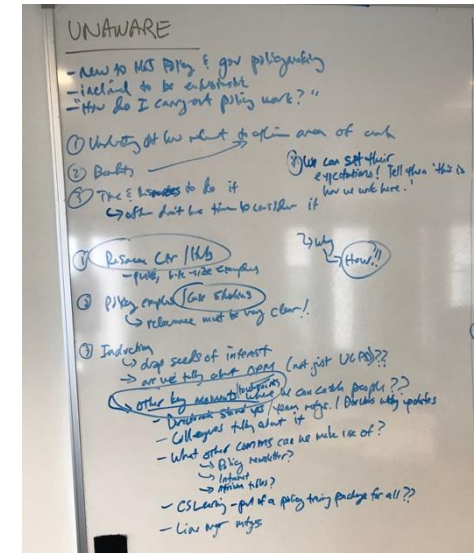 UNAWARE
- New to MoJ Policy & gov policymaking
- inclined to be enthusiastic
- "How do I carry out policy work?"
① how relevant to their area of work
② Benefits
③ Time & to do it
↳ often don't have time to consider it
* We can set their
expectations! Tell them 'this is
how we work here.'
↳ Why
↳ How?!
① Resource /Hub
- bite-size examples
② Policy examples /Case Studies
↳ relevance must be very clear!
③ Induction
↳ drop seeds of interest
→ are we talking about (not just )??
→ other key moments/touchpoints where we can catch people??
- stand ups / team mtgs / Directors wkly updates
- Colleagues talking about it
- What other comms can we make use of?
↳ Policy newsletter?
↳ Intranet
↳ talks?
- CS Learning - part of a policy training package for all??
- Line mgr mtgs